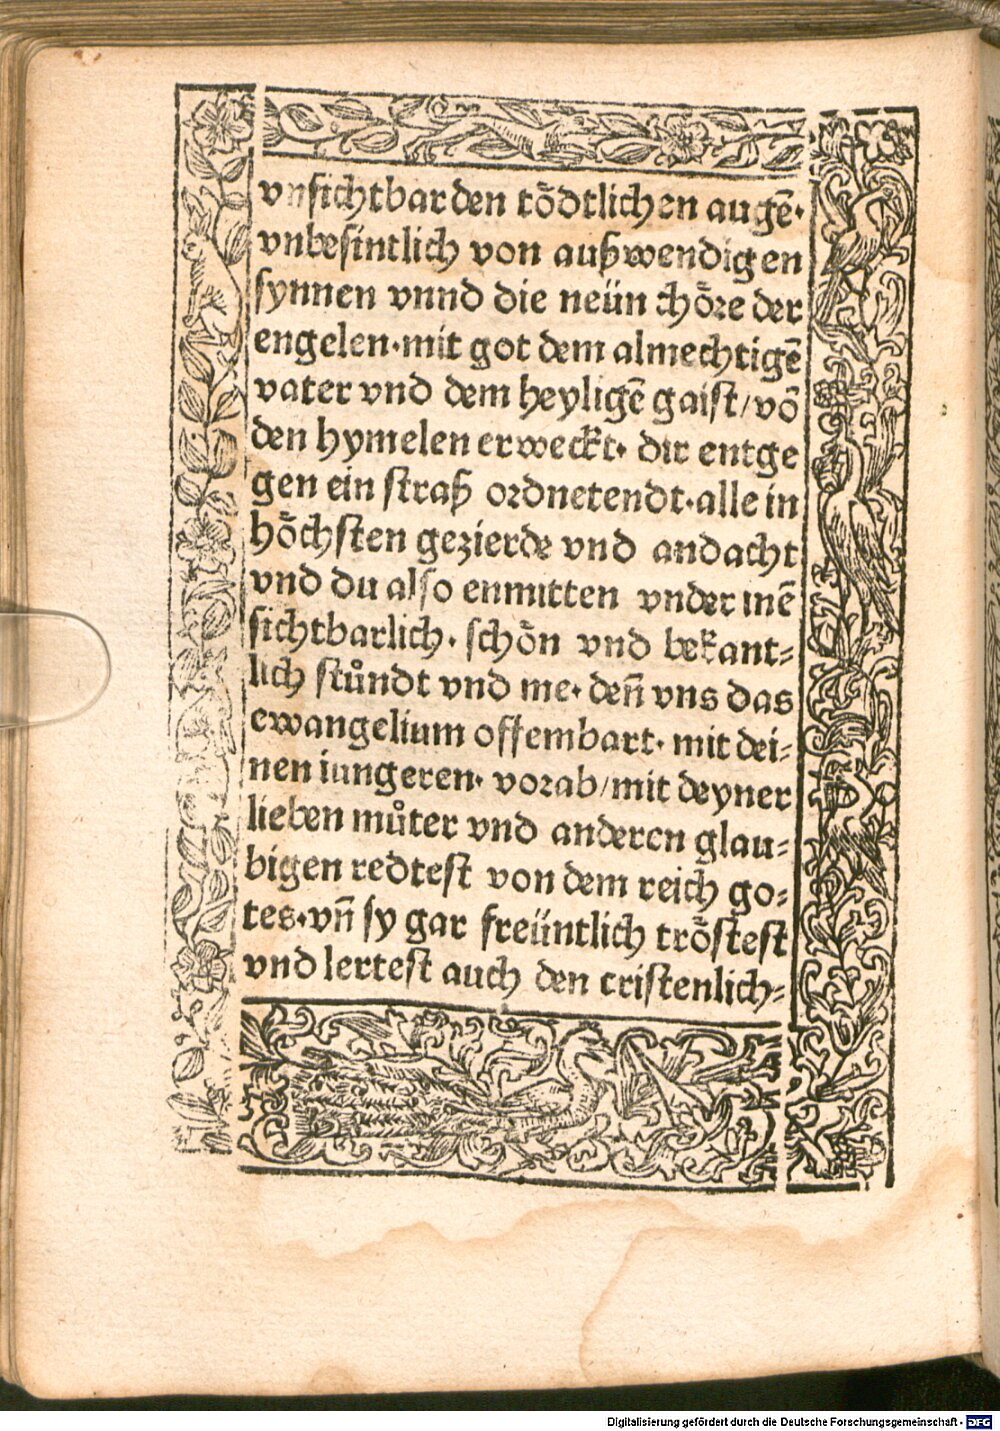 vnsichtbar den tödtlichen augē·
vnbesintlich von außwendigen
synnen vnnd die neün chöre der
engelen·mit got dem almechtigē
vater vnd dem heyligē gaist/vō
den hymelen erweckt· dir entge
gen ein straß ordnetendt·alle in
höchsten gezierde vnd andacht
vnd du also enmitten vnder inē
sichtbarlich· schön vnd bekant⸗
lich stůndt vnd me· den̄ vns das
ewangelium offembart· mit dei⸗
nen iungeren· vorab/mit deyner
lieben můter vnd anderen glau⸗
bigen redtest von dem reich go⸗
tes·vn̄ sy gar freüntlich tröstest
vnd lertest auch den cristenlich⸗
Digitalisierung gefördert durch die Deutsche Forschungsgemeinschaft - DFG